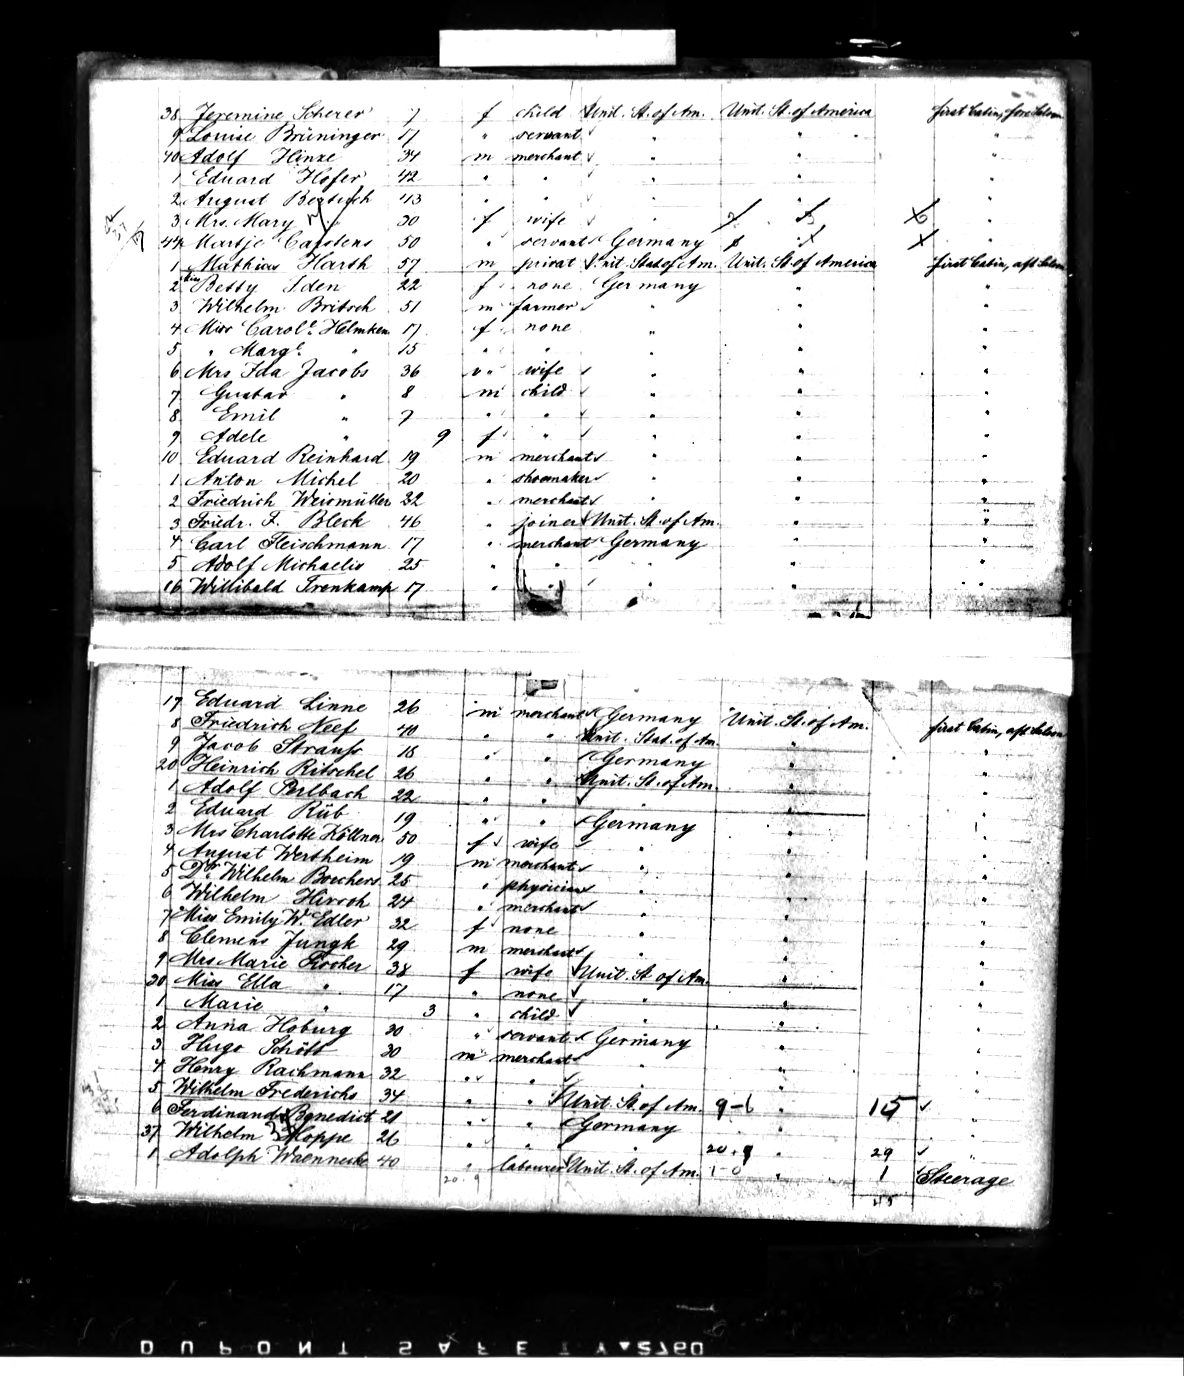 38 Jeremine Scherer 7 f child Unit. St. of Am. Unit. St. of America first Cabin, fore Saloon
9 Louise Brüninger 17 " servant " " "
40 Adolf Hinze 34 m merchant " " "
1 Eduard Hofer 42 " " " " "
2 August Bertsch 43 " " " " "
3 Mrs. Mary " 30 f wife "
44 Martje Carstens 50 " servant Germany "
1 Mathias Harth 57 m privat Unit. Stat. of Am. Unit. St. of America first Cabin, aft Saloon
2 Miss Betty Iden 22 f none Germany " "
3 Wilhelm Britsch 51 m farmer " " "
4 Miss Carol. Helmken 17 f none " " "
5 " Marg. " 15 " " " " "
6 Mrs Ida Jacobs 36 " wife " " "
7 Gustav " 8 m child " " "
8 Emil " 7 " " " " "
9 Adele " 9 f " " " "
10 Eduard Reinhard 19 m merchant " " "
1 Anton Michel 20 " shoemaker " " "
2 Friedrich Weismüller 32 " merchant " " "
3 Friedr. F. Bleck 46 " joiner Unit. St. of Am. " "
4 Carl Fleischmann 17 " merchant Germany " "
5 Adolf Michaelis 25 " " " " "
16 Willibald Trenkamp 17 " " " "
17 Eduard Linne 26 m merchant Germany Unit. St. of Am. first Cabin, aft Saloon
8 Friedrich Neef 40 " " Unit. Stat. of Am. "
9 Jacob Strauss 18 " Germany " "
20 Heinrich Ritschel 26 " " Unit. St. of Am. " "
1 Adolf Perlbach 22 " " " " "
2 Eduard Rüb 19 " " Germany " "
3 Mrs Charlotte Köllner 50 f wife " " "
4 August Wertheim 19 m merchant " " "
5 Dr. Wilhelm Borchers 25 " physician " " "
6 Wilhelm Hirsch 24 " merchant " " "
7 Miss Emily W. Edler 32 f none " " "
8 Clemens Jungk 29 m merchant " " "
9 Mrs Marie Kocher 38 f wife Unit. St. of Am. " "
30 Miss Ella " 17 " none " " "
1 Marie " 3 " child " " "
2 Anna Hoburg 30 " servant Germany " "
3 Hugo Schött 30 m merchant " " "
4 Henry Rachmann 32 " " " " "
5 Wilhelm Frederichs 34 " " Unit. St. of Am. 9-6 " 15 "
6 Ferdinand Benedict 21 " " Germany " "
37 Wilhelm Hoppe 26 " " " 20.9 " 29 "
1 Adolph Waennecke 40 " labourer Unit. St. of Am. 1-0 " 1 Steerage
20.9 45
DUPONT SAFETY 2760